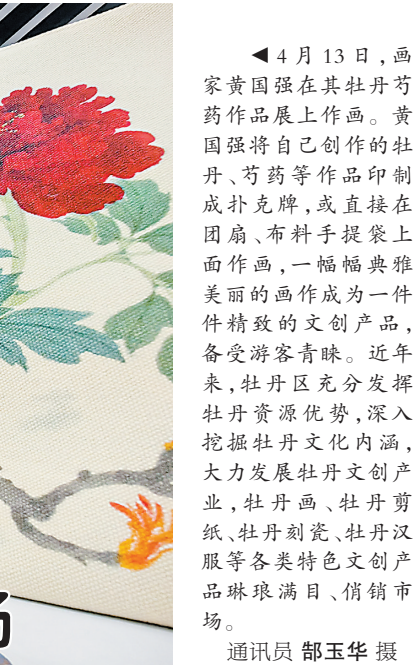 ◀4月13日，画
家黄国强在其牡丹芍
药作品展上作画。黄
国强将自己创作的牡
丹、芍药等作品印制
成扑克牌，或直接在
团扇、布料手提袋上
面作画，一幅幅典雅
美丽的画作成为一件
件精致的文创产品，
备受游客青睐。近年
来，牡丹区充分发挥
牡丹资源优势，深入
挖掘牡丹文化内涵，
大力发展牡丹文创产
业，牡丹画、牡丹剪
纸、牡丹刻瓷、牡丹汉
服等各类特色文创产
品琳琅满目、俏销市
场。
通讯员 郜玉华 摄